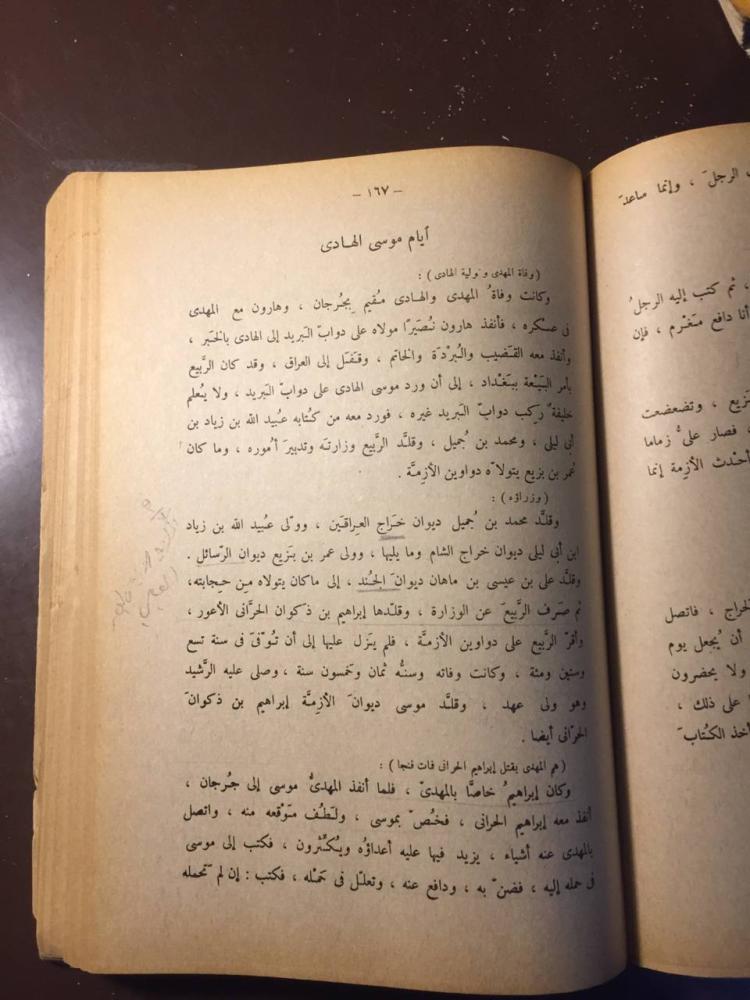 – ١٦٧ –
أيام موسى الهادى
( وفاة المهدى وتولية الهادى ) :
وكانت وفاةُ المهدى والهادى مُقيم بِجُرجان ، وهارون مع المهدى
فى عسكره ، فأنفذ هارون نُصَيرًا مولاه على دوابّ البريد إلى الهادى بالخبَر ،
وأنفذ معه القَضيب والبُرْدَة والخاتم ، وقَفَل إلى العراق ، وقد كان الرَّبيع
بأمر البَيْعة ببَغْداد ، إلى أن ورد موسى الهادى على دوابّ البريد ، ولا يُعلم
خليفةٌ ركب دوابّ البريد غيره ، فورد معه من كتابه عبيد الله بن زياد بن
أبى ليلى ، ومحمد بن جُميل ، وقلَّد الرَّبيع وزارته وتدبيرَ أموره ، وما كان
عُمر بن بزيع يتولاّه دواوين الأزِمَّة .
( وزراؤه ) :
وقلَّد محمد بن جُميل ديوان خَراج العِراقَين ، وولّى عُبيد الله بن زياد
ابن أبى ليلى ديوان خراج الشام وما يليها ، وولى عمر بن بَزيع ديوان الرّسائل .
وقلَّد على بن عيسى بن ماهان ديوانَ الجُند ، إلى ماكان يتولاه مِن حِجابته،
ثم صَرف الرَّبيعَ عن الوزارة ، وقلَّدها إبراهيم بن ذكوان الحرَّانى الأعور ،
وأقرّ الرَّبيع على دواوين الأزمَّة ، فلم يَزل عليها إلى أن تُوفّى فى سنة تسع
وستين ومئة ، وكانت وفاته وسنُّه ثمان وخمسون سنة ، وصلى عليه الرَّشيد
وهو ولى عهد ، وقلَّد موسى ديوانَ الأزِمَّة إبراهيم بن ذكوانَ
الحرّانى أيضا .
( هم المهدى بقتل إبراهيم الحرانى فات فنجا ) :
وكان إبراهيمُ خاصًّا بالمهدىّ ، فلما أنفذ المهدىُّ موسى إلى جُرجان ،
أنفذ معه إبراهيم الحرانى ، فخُصّ بموسى ، ولَطُف مَوْقعه منه ، واتصل
بالمهدى عنه أشياء ، يزيد فيها عليه أعداؤه ويُكَثِّرون ، فكتب إلى موسى
فى حمله إليه ، فضنّ به ، ودافع عنه ، وتعلّل فى حَمْله ، فكتب : إن لم تَحمله
الرجلَ ، وإنما ساعدَ
، ثم كتب إليه الرجلُ
أنا دافع مَغْرم ، فإن
بَزيع ، وتضعضعت
، فصار علىُّ زماما
أحْدث الأزِمة إنما
الخراج ، فاتصل
أن يُجعل يوم
ولا يحضرون
على ذلك ،
أخذ الكُتابَ